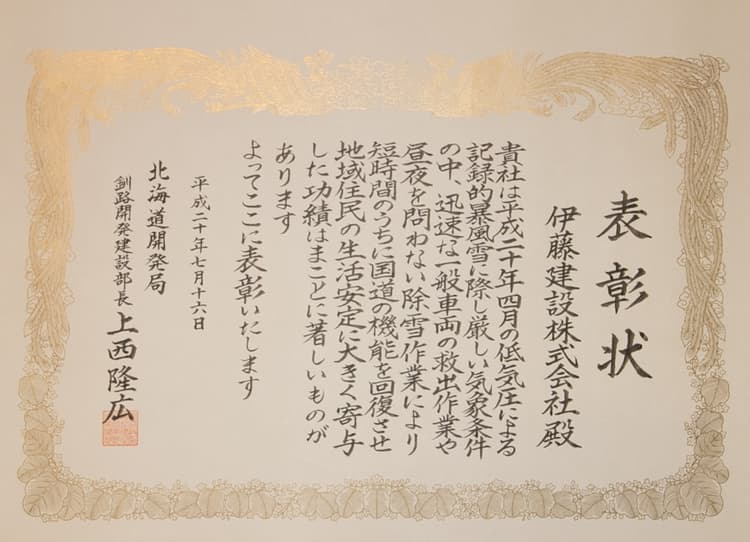 表彰状
伊藤建設株式会社殿
貴社は平成二十年四月の低気圧による
記録的暴風雪に際し厳しい気象条件
の中、迅速な一般車両の救出作業や
昼夜を問わない除雪作業により
短時間のうちに国道の機能を回復させ
地域住民の生活安定に大きく寄与
した功績はまことに著しいものが
あります
よってここに表彰いたします
平成二十年七月十六日
北海道開発局
釧路開発建設部長 上西隆広